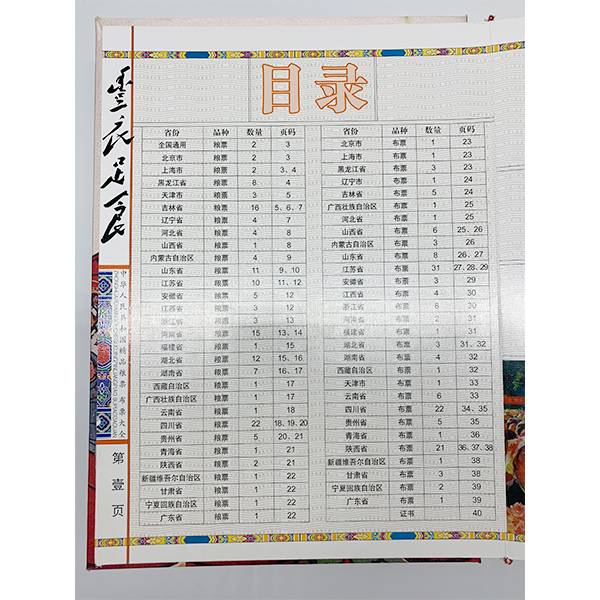 目录
丰衣足食
中华人民共和国精品粮票 布票大全
第壹页
省份 品种 数量 页码
全国通用 粮票 2 3
北京市 粮票 2 3
上海市 粮票 2 3、4
黑龙江省 粮票 8 4
天津市 粮票 3 5
吉林省 粮票 16 5、6、7
辽宁省 粮票 4 7
河北省 粮票 4 8
山西省 粮票 1 8
内蒙古自治区 粮票 4 9
山东省 粮票 11 9、10
江苏省 粮票 10 11、12
安徽省 粮票 5 12
江西省 粮票 3 12
浙江省 粮票 3 13
河南省 粮票 15 13、14
福建省 粮票 1 15
湖北省 粮票 12 15、16
湖南省 粮票 7 16、17
西藏自治区 粮票 1 17
广西壮族自治区 粮票 1 17
云南省 粮票 1 18
四川省 粮票 22 18、19、20
贵州省 粮票 5 20、21
青海省 粮票 1 21
陕西省 粮票 2 21
新疆维吾尔自治区 粮票 1 22
甘肃省 粮票 1 22
宁夏回族自治区 粮票 1 22
广东省 粮票 1 22
省份 品种 数量 页码
北京市 布票 1 23
上海市 布票 1 23
黑龙江省 布票 1 23
辽宁市 布票 1 24
吉林省 布票 5 24
广西壮族自治区 布票 1 25
河北省 布票 1 25
山西省 布票 6 25、26
内蒙古自治区 布票 3 26
山东省 布票 8 26、27
江苏省 布票 31 27、28、29
安徽省 布票 3 29
江西省 布票 4 30
浙江省 布票 8 30
河南省 布票 2 31
福建省 布票 1 31
湖北省 布票 3 31、32
湖南省 布票 4 32
西藏自治区 布票 1 32
天津市 布票 1 33
云南省 布票 6 33
四川省 布票 22 34、35
贵州省 布票 5 35
青海省 布票 1 36
陕西省 布票 21 36、37、38
新疆维吾尔自治区 布票 1 38
甘肃省 布票 3 38
宁夏回族自治区 布票 2 39
广东省 布票 1 39
证书 40